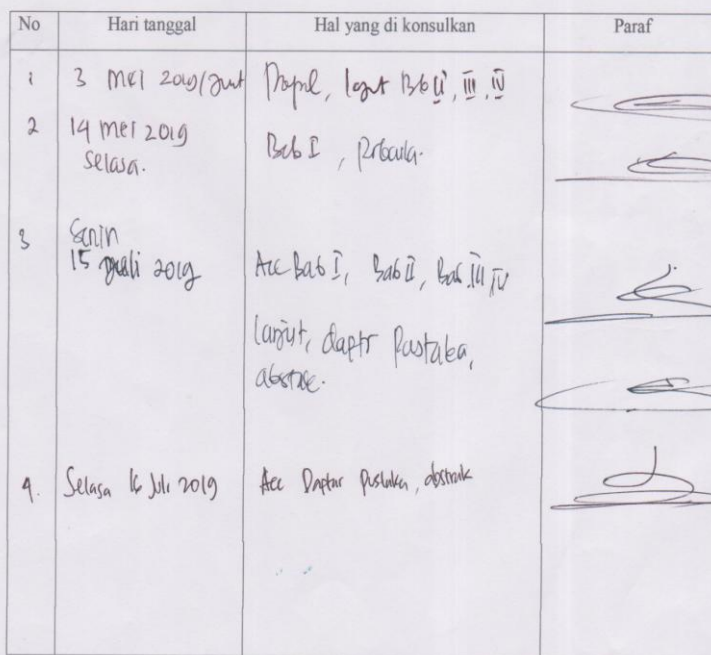 No Hari tanggal Hal yang di konsulkan Paraf
1 3 Mei 2019/Jum'at Bab II, III, IV
2 14 Mei 2019 Bab I,
Selasa.
3 Senin
15 Juli 2019 Acc Bab I, Bab II, Bab III, IV
lanjut, daptr Pustaka,
abstrak.
4. Selasa 16 Juli 2019 Acc Daptar Pustaka, abstrak